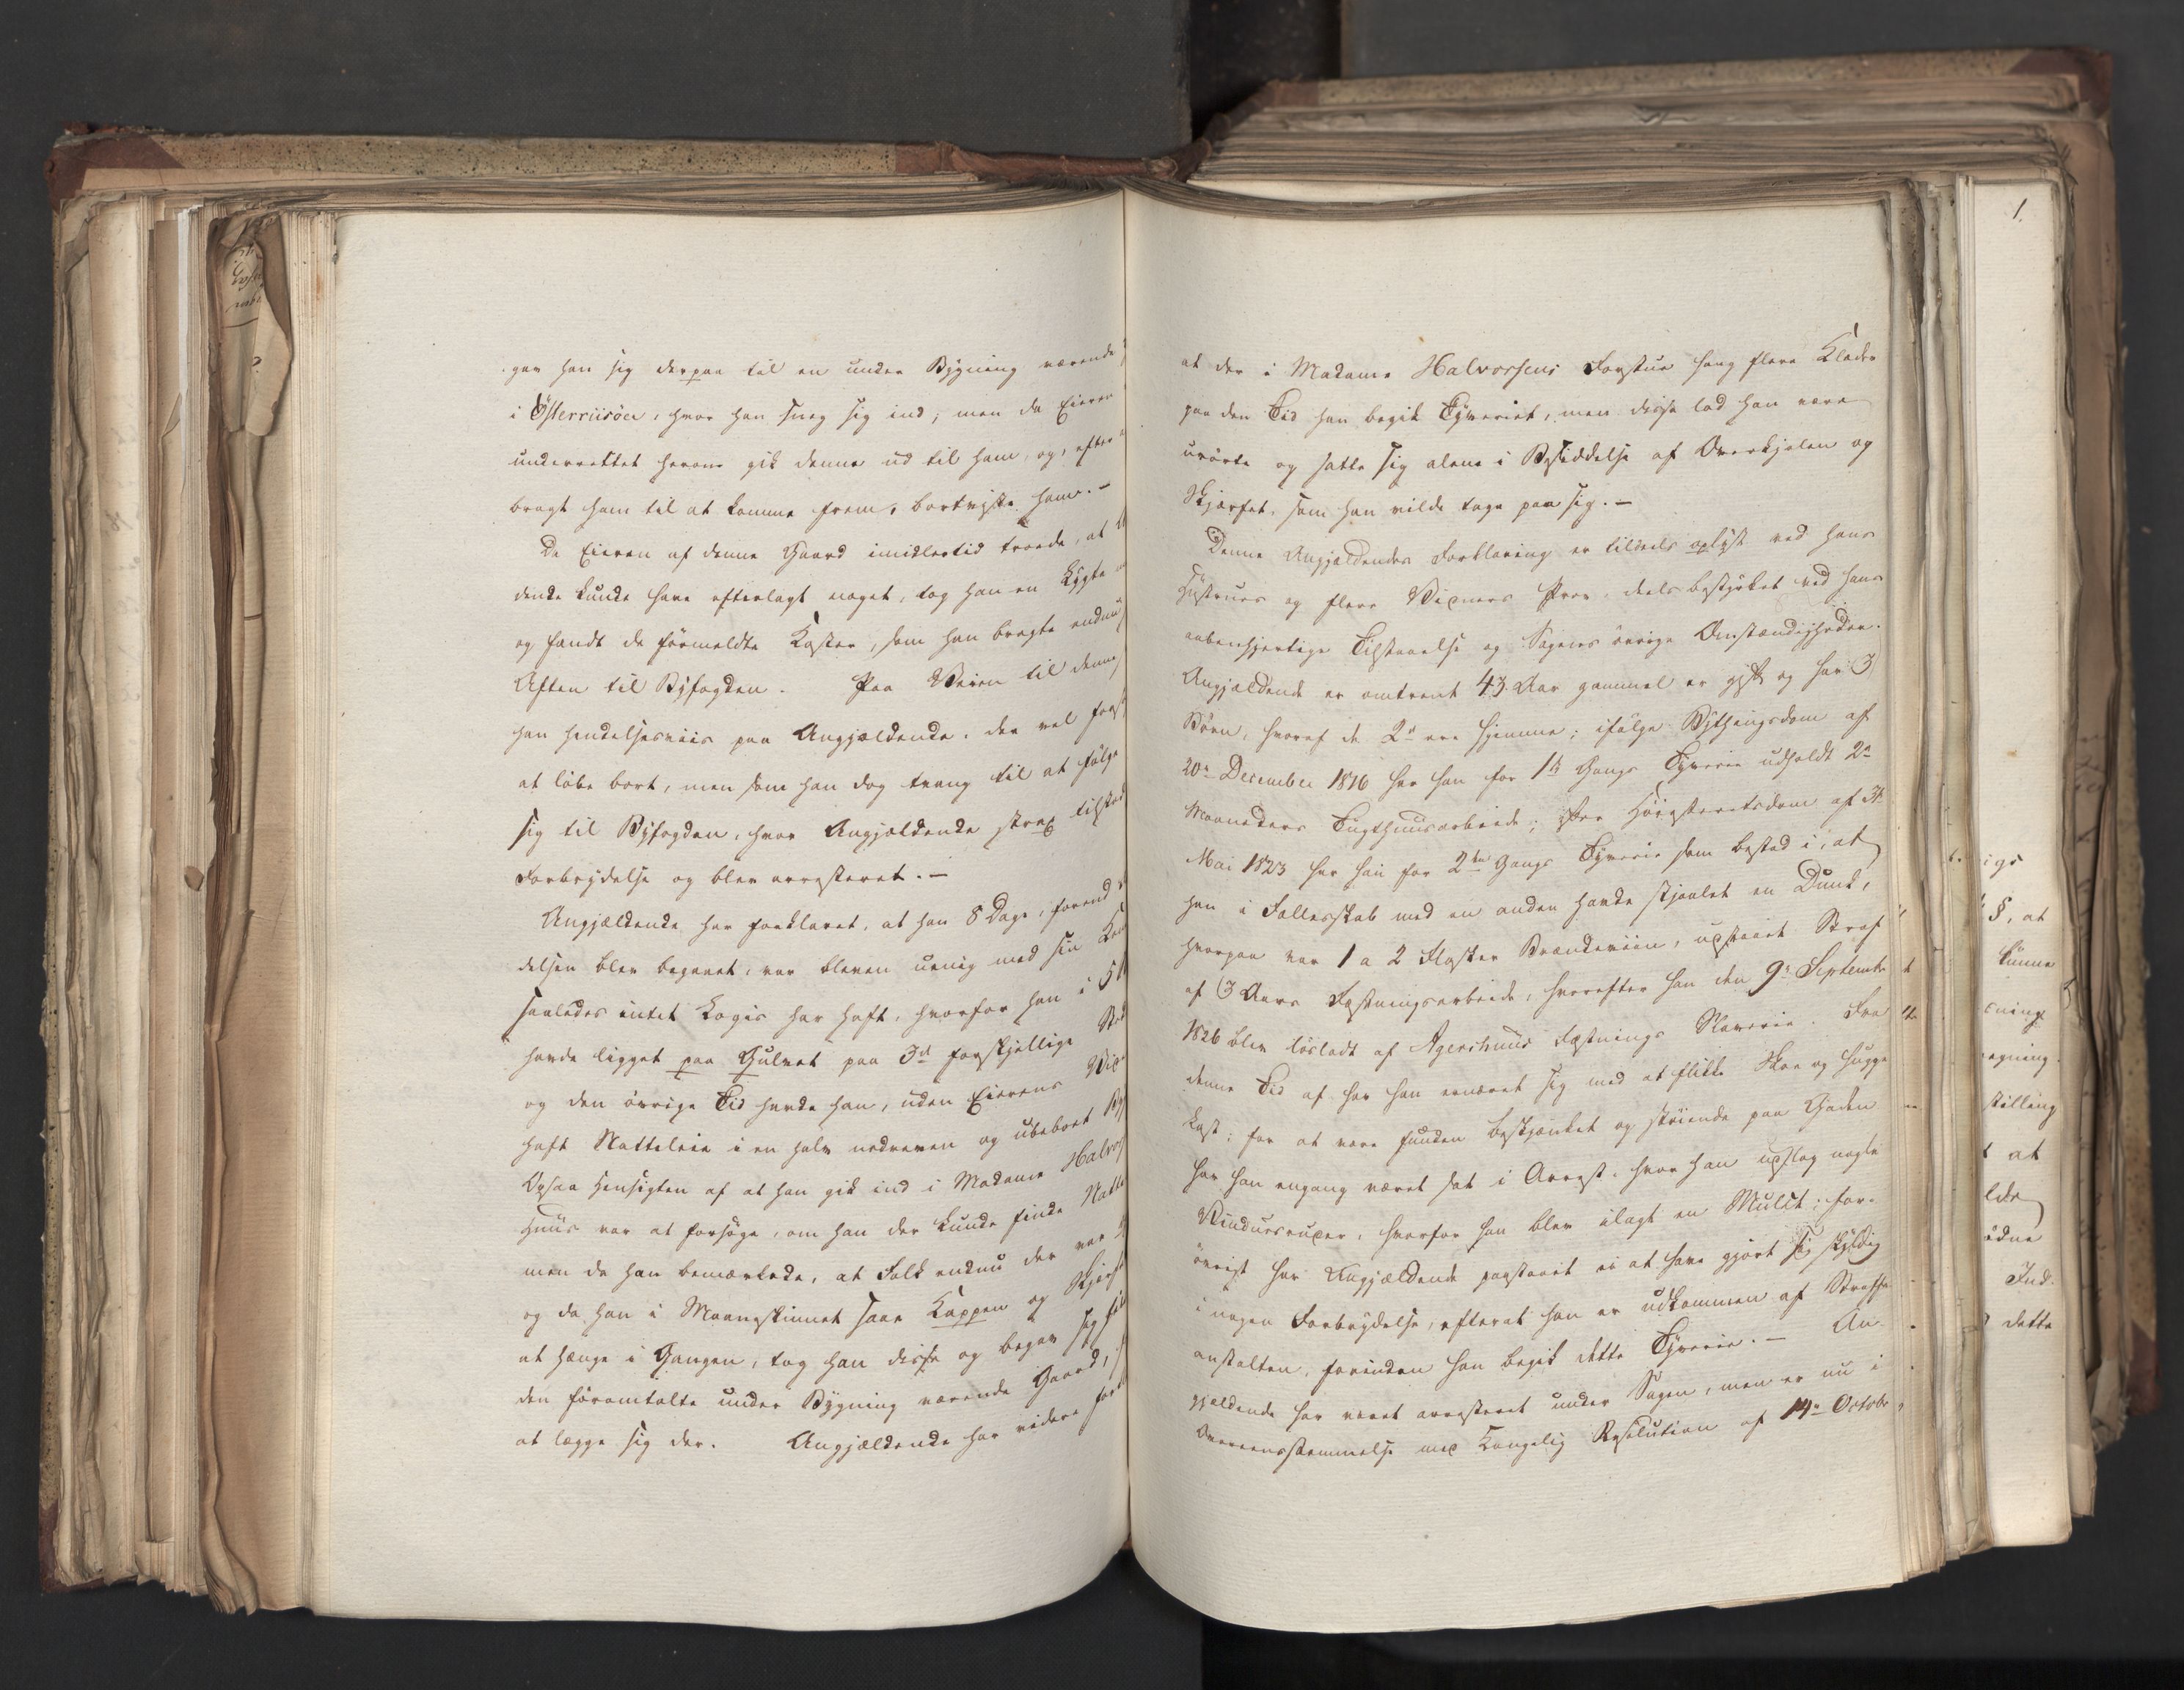 gav han sig derpaa til en under Bygning værende
i Österriisöer, hvor han sneg sig ind; men da Eieren
underrettet herom gik denne ud til ham, og, efter
bragt ham til at komme frem, bortviste ham. -
Da Eieren af denne Gaard imidlertid troede, at
dende kunde have efterlagt noget, tog han en Lygte
og fandt de förmeldte Koster, som han bragte endnu
Aften til Byfogden. Paa Veien til denne
han hendelsesviis paa Angjældende, der vel
at löbe bort, men som han dog tvang til at følge
sig til Byfogden, hvor Angjældende strax tilstod
Forbrydelse og blev arresteret. -
Angjældende har forklaret, at han 8 Dage, forend
delsen blev begaaet, var bleven uenig med sin
saaledes intet Logis har haft, hvorfor han i
havde ligget paa Gulvet paa 3de forskjellige
og den övrige Tid havde han, uden Eierens
haft Natteleie i en halv nedreven og ubeboet
Ogsaa Hensigten af at han gik ind i Madame Halvor
Huus var at forsöge, om han der kunde finde Natte
men da han bemærkede, at Folk endnu der var
og da han i Maaneskinnet saae Kappen og Skjærf
at hænge i Gangen, tog han disse og begav sig
den föromtalte under Bygning værende Gaard,
at lægge sig der. Angjældende har videre
at der i Madame Halvorsens Forstue hang flere Klæder
paa den Tid han begik Tyveriet, men disse lod han være
urörte og satte sig alene i Besiddelse af Overkjolen og
Skjærfet, som han vilde tage paa sig. -
Denne Angjældendes Forklaring er tildeels oplyst ved hans
Hustrues og flere Vidners Prov, deels bestyrket ved hans
aabenhjertige Tilstaaelse og Sagens övrige Omstændigheder.
Angjældende er omtrent 43 Aar gammel er gift og har 3
Börn, hvoraf de 2de ere hjemme; ifölge Bythingsdom af
20de December 1816 har han for 1ste Gangs Tyverie udholdt 2de
Maaneders Tugthuusarbeide; Höiesteretsdom af
Mai 1823 har han for 2den Gangs Tyverie som bestod i, at
han i Fællesskab med en anden havde stjaalet en Dunk,
hvorpaa var 1 a 2 Flasker Brændeviin, udstaaet Straf
af 3 Aars Fæstningsarbeide, hvorefter han den 9de Septembr
1826 blev lösladt af Agershuus Fæstnings Slaverie. Fra
denne Tid af har han ernæret sig med at flikke Skoe og hugge
Kast; for at være funden beskjænket og stöiende paa Gaden
har han engang været sat i Arrest, hvor han udslog nogle
Vinduesruder, hvorfor han blev ilagt en Mulct; for-
övrigt har Angjældende paastaaet ei at have gjort sig skyldig
i nogen Forbrydelse, efterat han er udkommen af Straffe
anstalten, forinden han begik dette Tyverie. - An-
gjældende har været arresteret under Sagen, men er nu i
Overeensstemmelse med Kongelig Resolution af 14de Octobr
1.
igs
§, at
kunne
sning
egning.
stilling
at
lde
ödne
Ind-
dette